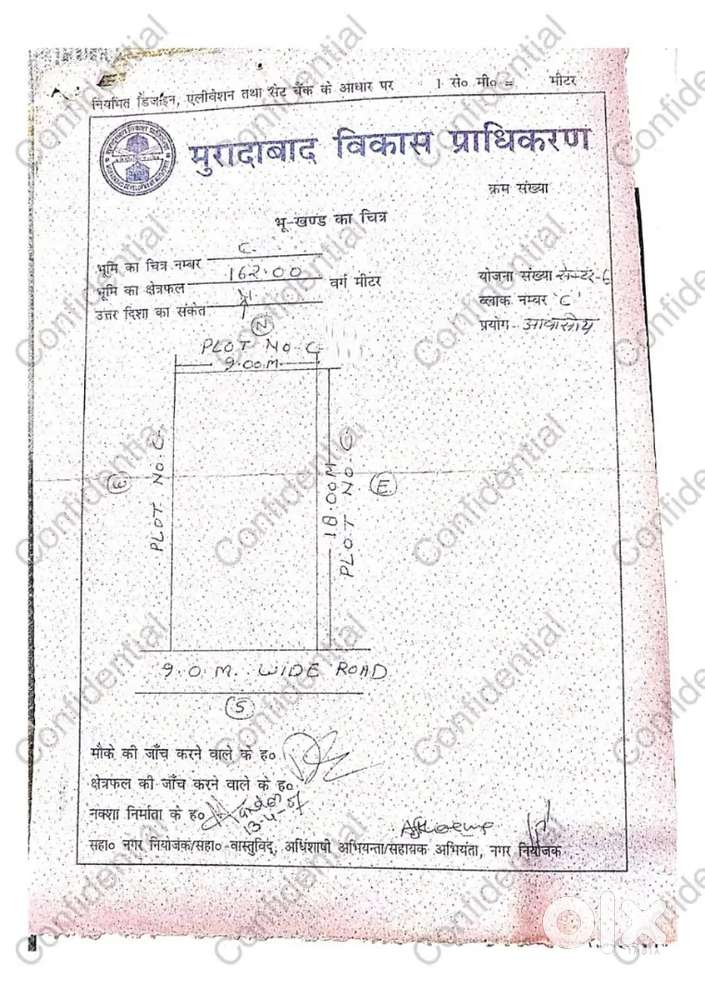 नियमित डिजाइन, एलीवेशन तथा सेट बैक के आधार पर 1 से० मी० = मीटर
मुरादाबाद विकास प्राधिकरण
क्रम संख्या
भू-खण्ड का चित्र
भूमि का चित्र नम्बर C-
भूमि का क्षेत्रफल 162.00 वर्ग मीटर
योजना संख्या सेक्टर-6
उत्तर दिशा का संकेत N
ब्लाक नम्बर 'C'
प्रयोग- आवासीय
N
PLOT No. C-
9.00M.
PLOT No. C-
18.00M
PLOT No. C-
E
9.0.M. WIDE ROAD
S
मौके की जाँच करने वाले के ह०
क्षेत्रफल की जाँच करने वाले के ह०
नक्शा निर्माता के ह०
सहा० नगर नियोजक/सहा०-वास्तुविद्, अधिशाषी अभियन्ता/सहायक अभियंता, नगर नियोजक
Confidential
olx
INDIA